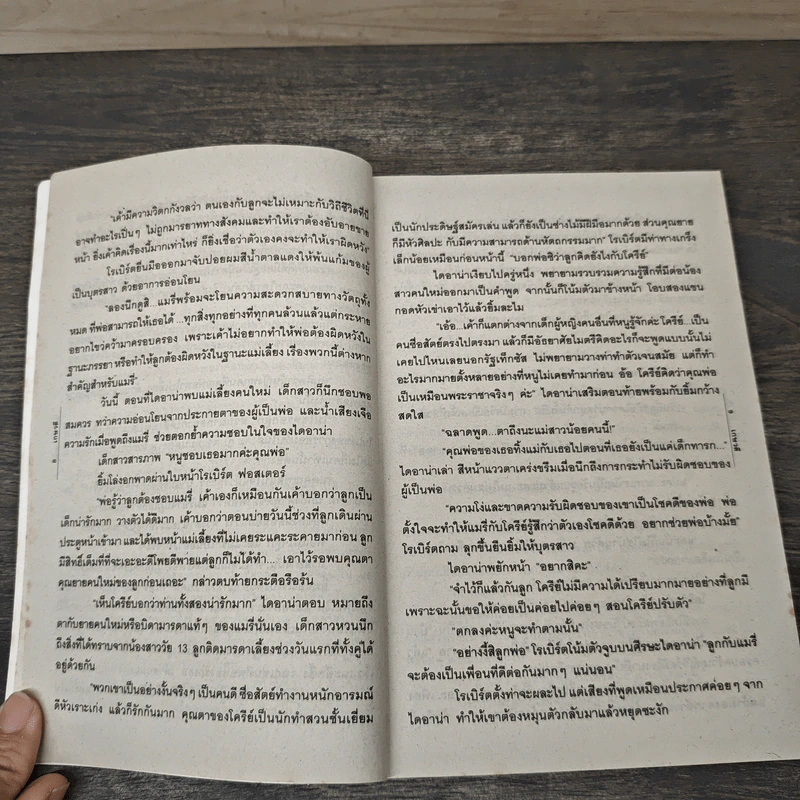 "เค้ามีความวิตกกังวลว่า ตนเองกับลูกจะไม่เหมาะกับวิถีชีวิตที่นี่
อาจทำอะไรเปิ่นๆ ไม่ถูกมารยาททางสังคมและทำให้เราต้องอับอายขาย
หน้า ยิ่งเค้าคิดเรื่องนี้มากเท่าไหร่ ก็ยิ่งเชื่อว่าตัวเองคงจะทำให้เราผิดหวัง"
โรเบิร์ตยื่นมือออกมาจับปอยผมสีน้ำตาลแดงให้พ้นแก้มของผู้
เป็นบุตรสาว ด้วยอาการอ่อนโยน
"ลองนึกดูสิ... แมรี่พร้อมจะโยนความสะดวกสบายทางวัตถุทั้ง
หมด ที่พ่อสามารถให้เธอได้ ...ทุกสิ่งทุกอย่างที่ทุกคนล้วนแล้วแต่กระหาย
อยากไขว่คว้ามาครอบครอง เพราะเค้าไม่อยากทำให้พ่อต้องผิดหวังใน
ฐานะภรรยา หรือทำให้ลูกต้องผิดหวังในฐานะแม่เลี้ยง เรื่องพวกนี้ต่างหาก
สำคัญสำหรับแมรี่"
วันนี้ ตอนที่ไดอาน่าพบแม่เลี้ยงคนใหม่ เด็กสาวก็นึกชอบพอ
สมควร ทว่าความอ่อนโยนจากประกายตาของผู้เป็นพ่อ และน้ำเสียงเจือ
ความรักเมื่อพูดถึงแมรี่ ช่วยตอกย้ำความชอบในใจของไดอาน่า
เด็กสาวสารภาพ "หนูชอบเธอมากค่ะคุณพ่อ"
ยิ้มโล่งอกพาดผ่านใบหน้าโรเบิร์ต ฟอสเตอร์
"พ่อรู้ว่าลูกต้องชอบแมรี่ เค้าเองก็เหมือนกันเค้าบอกว่าลูกเป็น
เด็กน่ารักมาก วางตัวได้ดีมาก เค้าบอกว่าตอนบ่ายวันนี้ช่วงที่ลูกเดินผ่าน
ประตูหน้าเข้ามา และได้พบหน้าแม่เลี้ยงที่ไม่เคยระแคะระคายมาก่อน ลูก
มีสิทธิ์เต็มที่ที่จะเอะอะตีโพยตีพายแต่ลูกก็ไม่ได้ทำ... เอาไว้รอพบคุณตา
คุณยายคนใหม่ของลูกก่อนเถอะ" กล่าวตบท้ายกระตือรือร้น
"เห็นโครีย์บอกว่าท่านทั้งสองน่ารักมาก" ไดอาน่าตอบ หมายถึง
ตากับยายคนใหม่หรือบิดามารดาแท้ๆ ของแมรี่นั่นเอง เด็กสาวหวนนึก
ถึงสิ่งที่ได้ทราบจากน้องสาววัย 13 ลูกติดมารดาเลี้ยงช่วงวันแรกที่ทั้งคู่ได้
อยู่ด้วยกัน
"พวกเขาเป็นอย่างงั้นจริงๆ เป็นคนดี ซื่อสัตย์ทำงานหนักอารมณ์
ดีหัวเราะเก่ง แล้วก็รักกันมาก คุณตาของโครีย์เป็นนักทำสวนชั้นเยี่ยม
เป็นนักประดิษฐ์สมัครเล่น แล้วก็ยังเป็นช่างไม้มีฝีมือมากด้วย ส่วนคุณยาย
ก็มีหัวศิลปะ กับมีความสามารถด้านหัตถกรรมมาก" โรเบิร์ตมีท่าทางเกร็ง
เล็กน้อยเหมือนก่อนหน้านี้ "บอกพ่อซิว่าลูกคิดยังไงกับโครีย์"
ไดอาน่าเงียบไปครู่หนึ่ง พยายามรวบรวมความรู้สึกที่มีต่อน้อง
สาวคนใหม่ออกมาเป็นคำพูด จากนั้นก็โน้มตัวมาข้างหน้า โอบสองแขน
กอดหัวเข่าเอาไว้แล้วยิ้มละไม
"เอ้อ...เค้าก็แตกต่างจากเด็กผู้หญิงคนอื่นที่หนูรู้จักค่ะ โครีย์...เป็น
คนซื่อสัตย์ตรงไปตรงมา แล้วก็มีอัธยาศัยไมตรีคิดอะไรก็จะพูดแบบนั้นไม่
เคยไปไหนเลยนอกรัฐเท็กซัส ไม่พยายามวางท่าทำตัวเจนสมัย แต่ก็ทำ
อะไรมากมายตั้งหลายอย่างที่หนูไม่เคยทำมาก่อน อ้อ โครีย์คิดว่าคุณพ่อ
เป็นเหมือนพระราชาจริงๆ ค่ะ" ไดอาน่าเสริมตอนท้ายพร้อมกับยิ้มกว้าง
สดใส
"ฉลาดพูด...ตาถึงนะแม่สาวน้อยคนนี้!"
"คุณพ่อของเธอทิ้งแม่กับเธอไปตอนที่เธอยังเป็นแค่เด็กทารก..."
ไดอาน่าเล่า สีหน้าแววตาเคร่งขรึมเมื่อนึกถึงการกระทำไม่รับผิดชอบของ
ผู้เป็นพ่อ
"ความโง่และขาดความรับผิดชอบของเขาเป็นโชคดีของพ่อ พ่อ
ตั้งใจจะทำให้แมรี่กับโครีย์รู้สึกว่าตัวเองโชคดีด้วย อยากช่วยพ่อบ้างมั้ย"
โรเบิร์ตถาม ลุกขึ้นยืนยิ้มให้บุตรสาว
ไดอาน่าพยักหน้า "อยากสิคะ"
"จำไว้ก็แล้วกันลูก โครีย์ไม่มีความได้เปรียบมากมายอย่างที่ลูกมี
เพราะฉะนั้นขอให้ค่อยเป็นค่อยไปค่อยๆ สอนโครีย์ปรับตัว"
"ตกลงค่ะหนูจะทำตามนั้น"
"อย่างงี้สิลูกพ่อ" โรเบิร์ตโน้มตัวจูบบนศีรษะไดอาน่า "ลูกกับแมรี่
จะต้องเป็นเพื่อนที่ดีต่อกันมากๆ แน่นอน"
โรเบิร์ตตั้งท่าจะผละไป แต่เสียงที่พูดเหมือนประกาศค่อยๆ จาก
ไดอาน่า ทำให้เขาต้องหมุนตัวกลับมาแล้วหยุดชะงัก